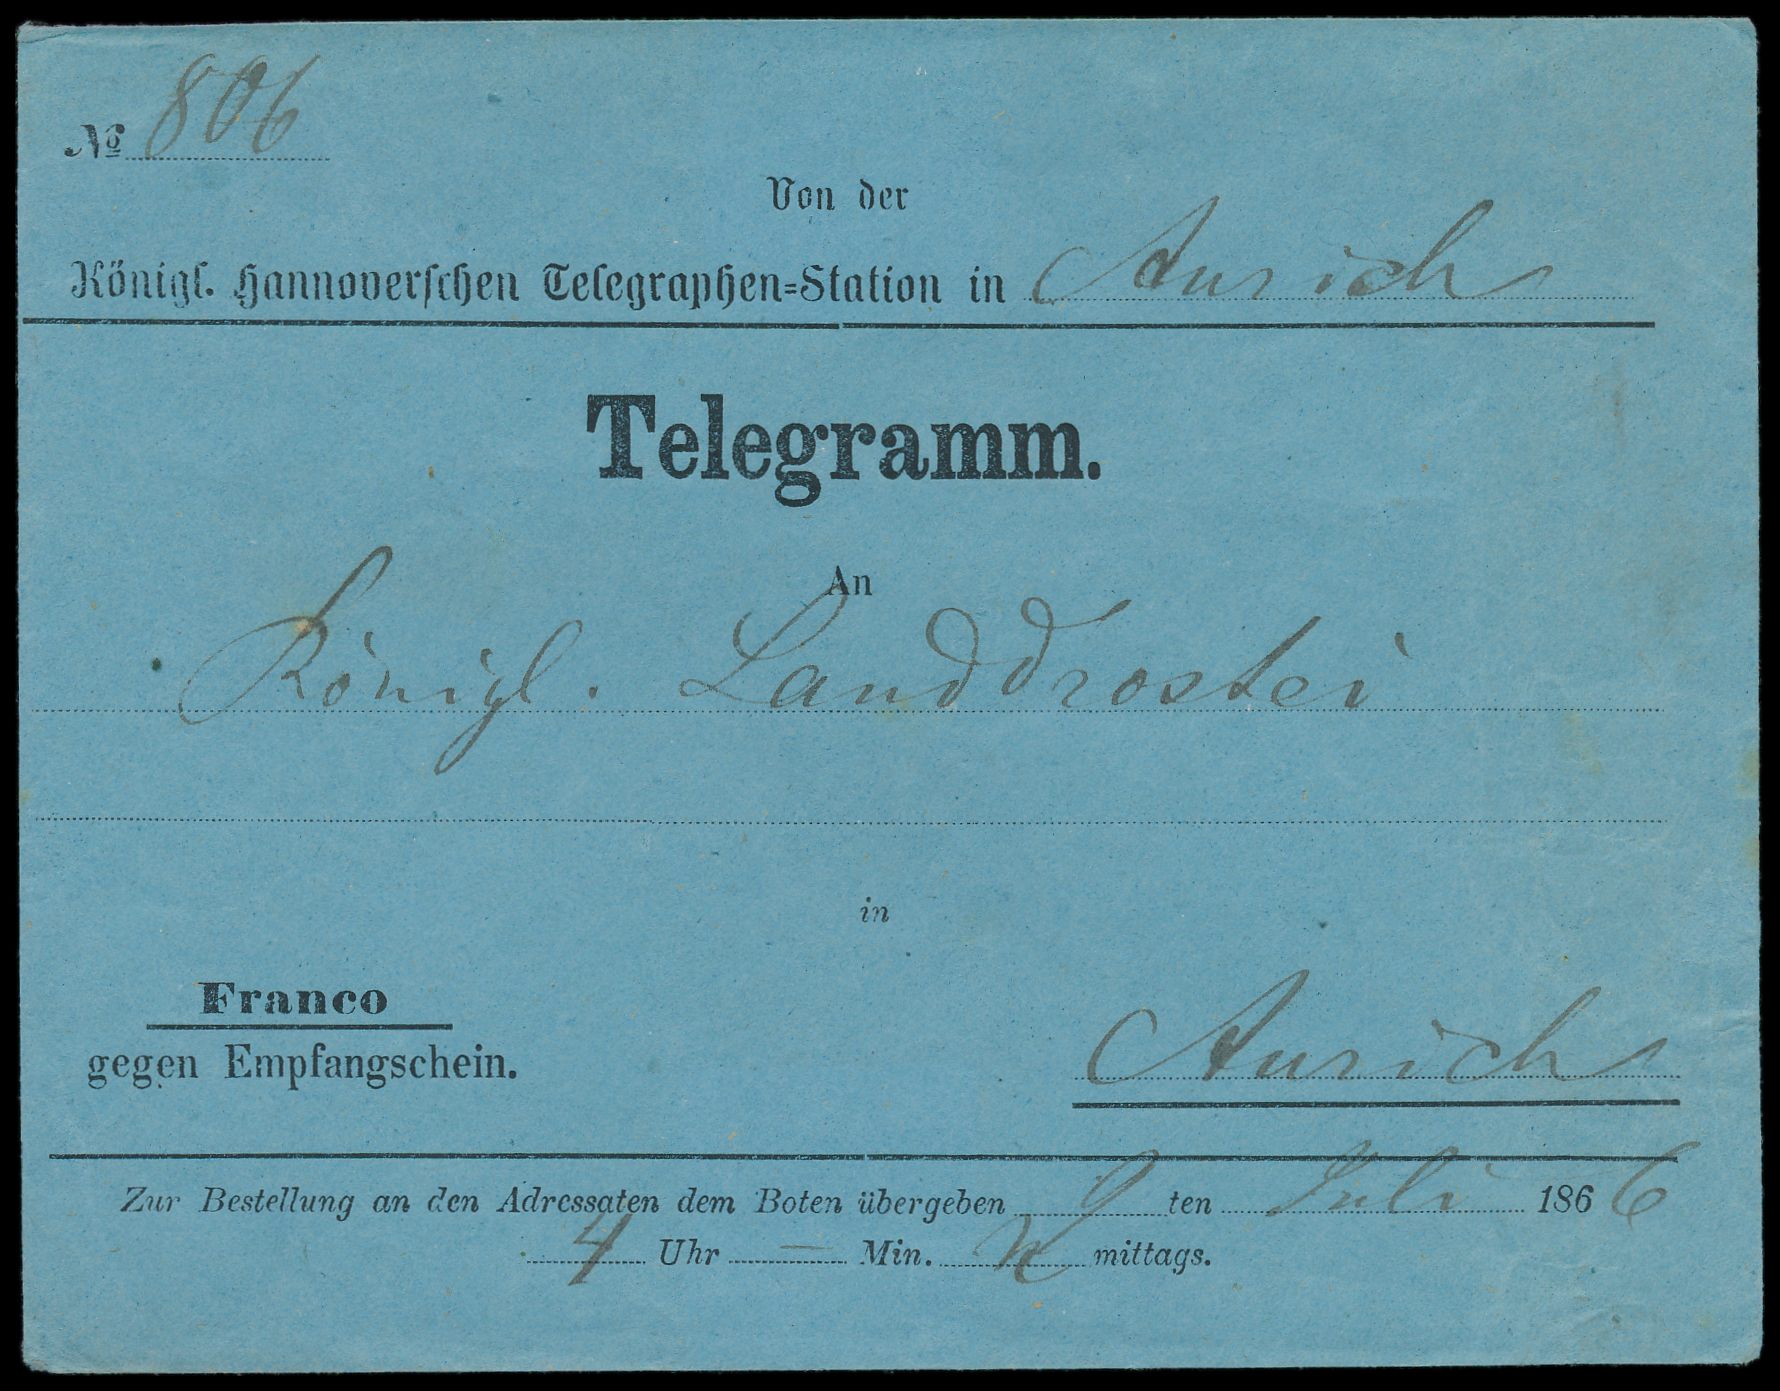 № 806
Von der
Königl. Hannoverschen Telegraphen=Station in Aurich
Telegramm.
An
Königl. Landdrostei
in
Franco
Aurich
gegen Empfangschein.
Zur Bestellung an den Adressaten dem Boten übergeben 9 ten Juli 1866
4 Uhr — Min. N mittags.